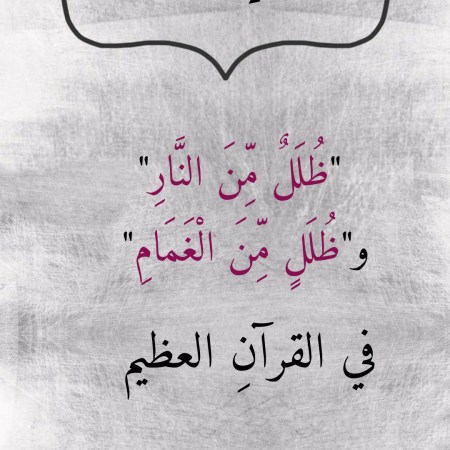 "ظُلَلٌ مِّنَ النَّارِ"
و"ظُلَلٍ مِّنَ الْغَمَامِ"
في القرآنِ العظيم